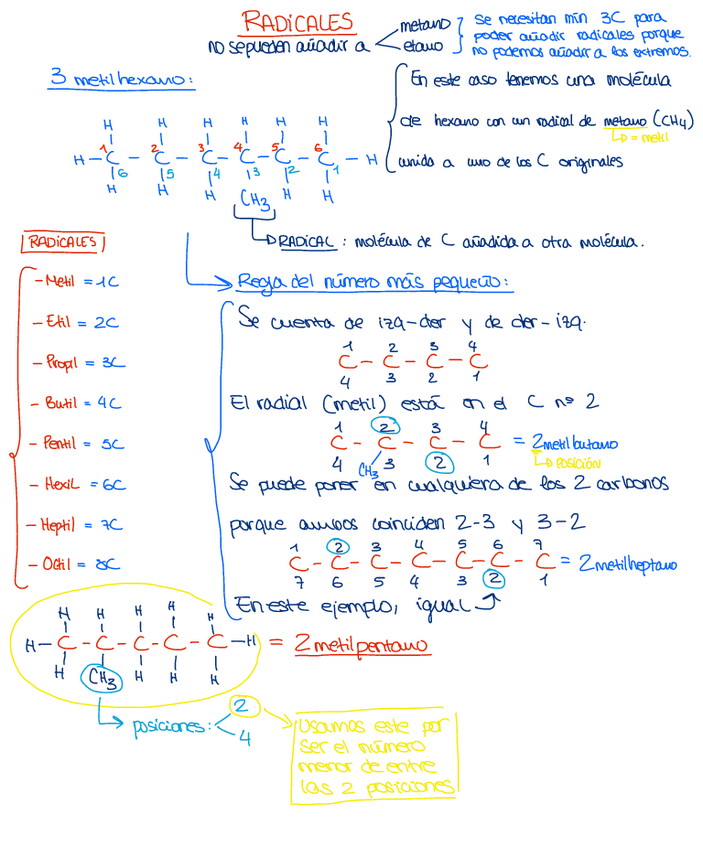 RADICALES
no se pueden añadir a
metano
etano
Se necesitan mín 3C para
poder añadir radicales porque
no podemos añadir a los extremos.
3 metilhexano:
En este caso tenemos una molécula
de hexano con un radical de metano (CH4)
= metil
unida a uno de los C originales
H H H H H H
1 2 3 4 5 6
H-C-C-C-C-C-C-H
6 5 4 3 2 1
H H H CH3 H H
RADICAL: molécula de C añadida a otra molécula.
RADICALES
-Metil = 1C
-Etil = 2C
-Propil = 3C
-Butil = 4C
-Pentil = 5C
-Hexil = 6C
-Heptil = 7C
-Octil = 8C
Regla del número más pequeño:
Se cuenta de izq-der y de der-izq.
1 2 3 4
C-C-C-C
4 3 2 1
El radial (metil) está en el C nº 2
1 2 3 4
C-C-C-C = 2metilbutano
4 CH3 3 2 1
posición
Se puede poner en cualquiera de los 2 carbonos
porque ambos coinciden 2-3 y 3-2
1 2 3 4 5 6 7
C-C-C-C-C-C-C = 2metilheptano
7 6 5 4 3 2 1
En este ejemplo, igual
H H H H H
H-C-C-C-C-C-H = 2metilpentano
H CH3 H H H
posiciones:
2
4
Usamos este por
ser el número
menor de entre
las 2 posiciones